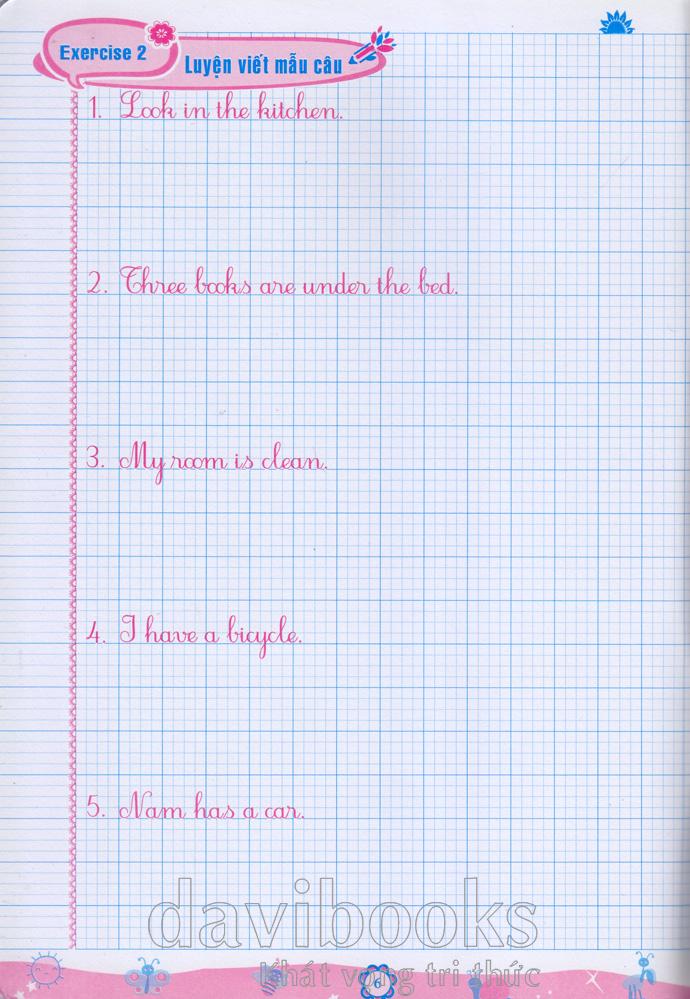 Exercise 2
Luyện viết mẫu câu
1. Look in the kitchen.
2. Three books are under the bed.
3. My room is clean.
4. I have a bicycle.
5. Nam has a car.
davibooks
Khát vọng tri thức
6